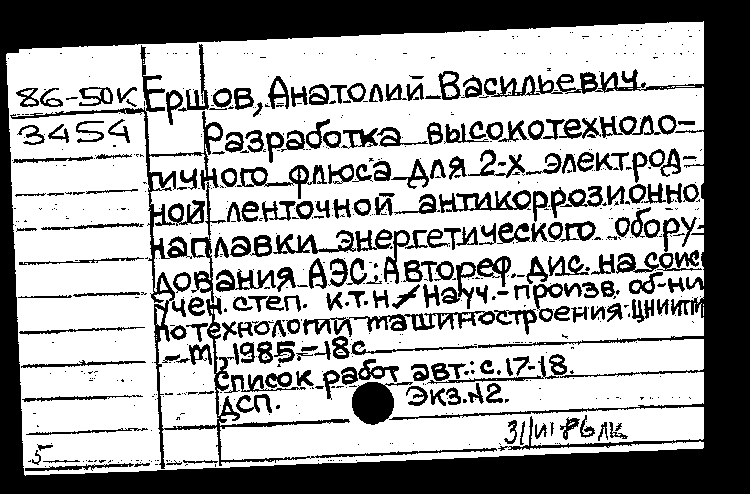 86-50К Ершов, Анатолий Васильевич.
3454 Разработка высокотехноло-
гичного флюса для 2-х электрод-
ной ленточной антикоррозионно
наплавки энергетического обору-
дования АЭС: Автореф. дис. на соис
учен. степ. к.т.н. / Науч.-произв. об-ни
по технологии машиностроения ЦНИИТМ
- М, 1985.-18с
Список работ авт.: с.17-18.
ДСП. Экз.№2.
31/III-86 ЛК
5